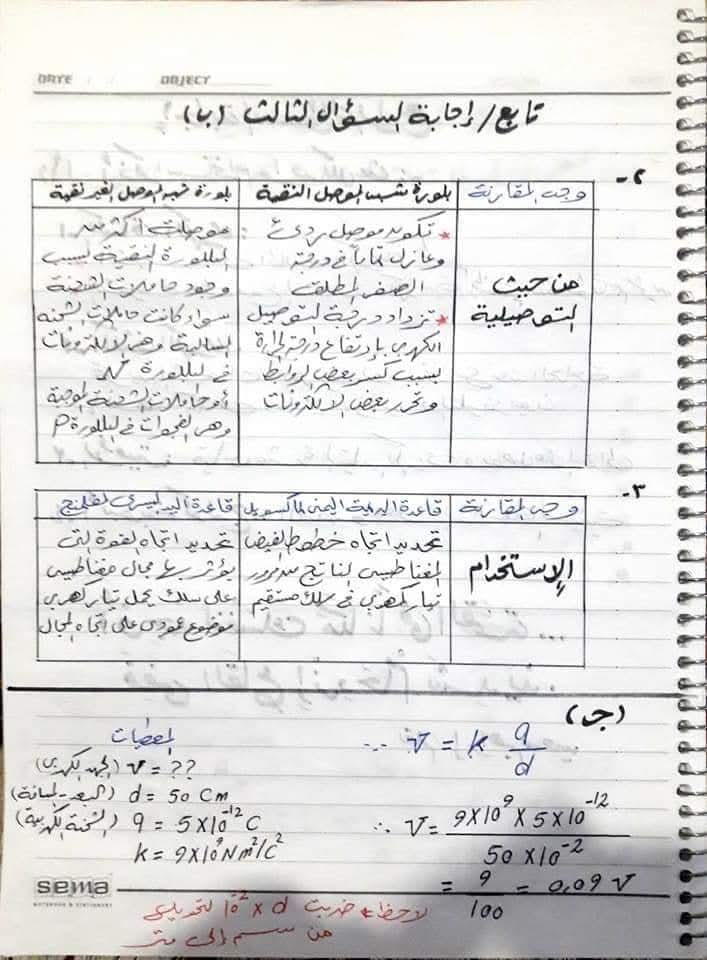 DATE / / OBJECT
تابع/ إجابة السؤال الثالث (ب)
٢-
وجه المقارنة
بلورة شبه الموصل النقية
بلورة شبه الموصل الغير نقية
من حيث
التوصيلية
* تكون موصل ردئ
وعازل تماماً في درجة
الصفر المطلق
* تزداد درجة التوصيل
الكهربي بارتفاع درجة الحرارة
بسبب كسر بعض الروابط
وتحرر بعض الالكترونات
موصلات أكثر من
البللورة النقية بسبب
وجود حاملات الشحنة
سواء كانت حاملات الشحنة
السالبة وهى الالكترونات
في البللورة
أو حاملات الشحنة الموجبة
وهى الفجوات فى البللورة P
٣-
وجه المقارنة
قاعدة البريمة اليمنى لماكسويل
قاعدة اليد اليسرى لفلمنج
الإستخدام
تحديد اتجاه خطوط الفيض
المغناطيسى الناتج من مرور
تيار كهربي فى سلك مستقيم
تحديد اتجاه القوة التى
يؤثر بها مجال مغناطيسى
على سلك يحمل تيار كهربى
موضوع عمودى على اتجاه المجال
(جـ)
المعطيات
(الجهد الكهربي) V = ??
(البعد - المسافة) d = 50 Cm
(الشحنة الكهربية) q = 5×10⁻¹² C
k = 9×10⁹ Nm²/C²
∵ V = k q/d
∴ V = 9×10⁹ × 5×10⁻¹² / 50×10⁻²
= 9/100 = 0,09 V
لاحظ * ضربت d × 10⁻² للتحويل
من سم إلى متر
sema
NOTEBOOK & STATIONERY